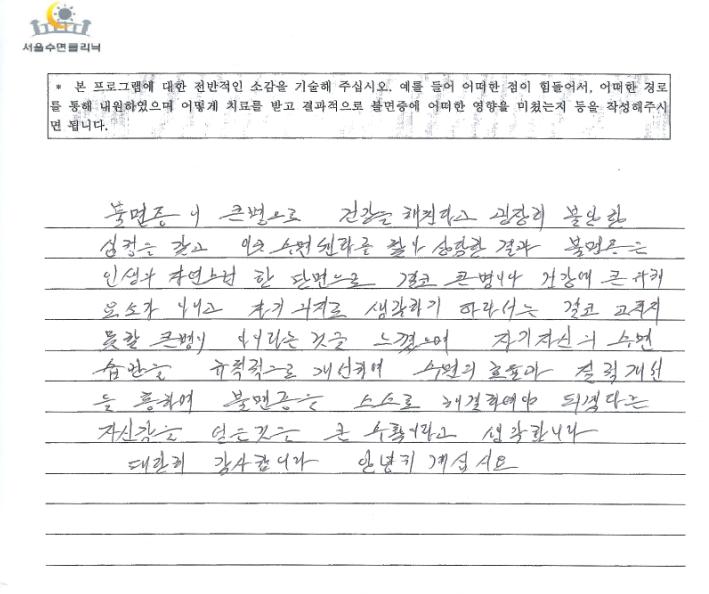 서울수면클리닉
* 본 프로그램에 대한 전반적인 소감을 기술해 주십시오. 예를 들어 어떠한 점이 힘들어서, 어떠한 경로
를 통해 내원하였으며 어떻게 치료를 받고 결과적으로 불면증에 어떠한 영향을 미쳤는지 등을 작성해주시
면 됩니다.
불면증이 큰병으로 건강을 해친다고 굉장히 불안한
심정을 갖고 수면센타를 찾아 상담한 결과 불면증은
인생의 자연스런 한 단면으로 결코 큰 병이나 건강에 큰
요소가 아니고 자기 생각하기 따라서는 결코 고치지
못할 큰병이 아니라는 것을 느꼈으며 자기자신의 수면
습관을 규칙적으로 개선하며 수면의 효율과 질적 개선
을 통하여 불면증을 스스로 해결하여야 되겠다는
자신감을 얻은것은 큰 수확이라고 생각합니다
대단히 감사합니다 안녕히 계십시요